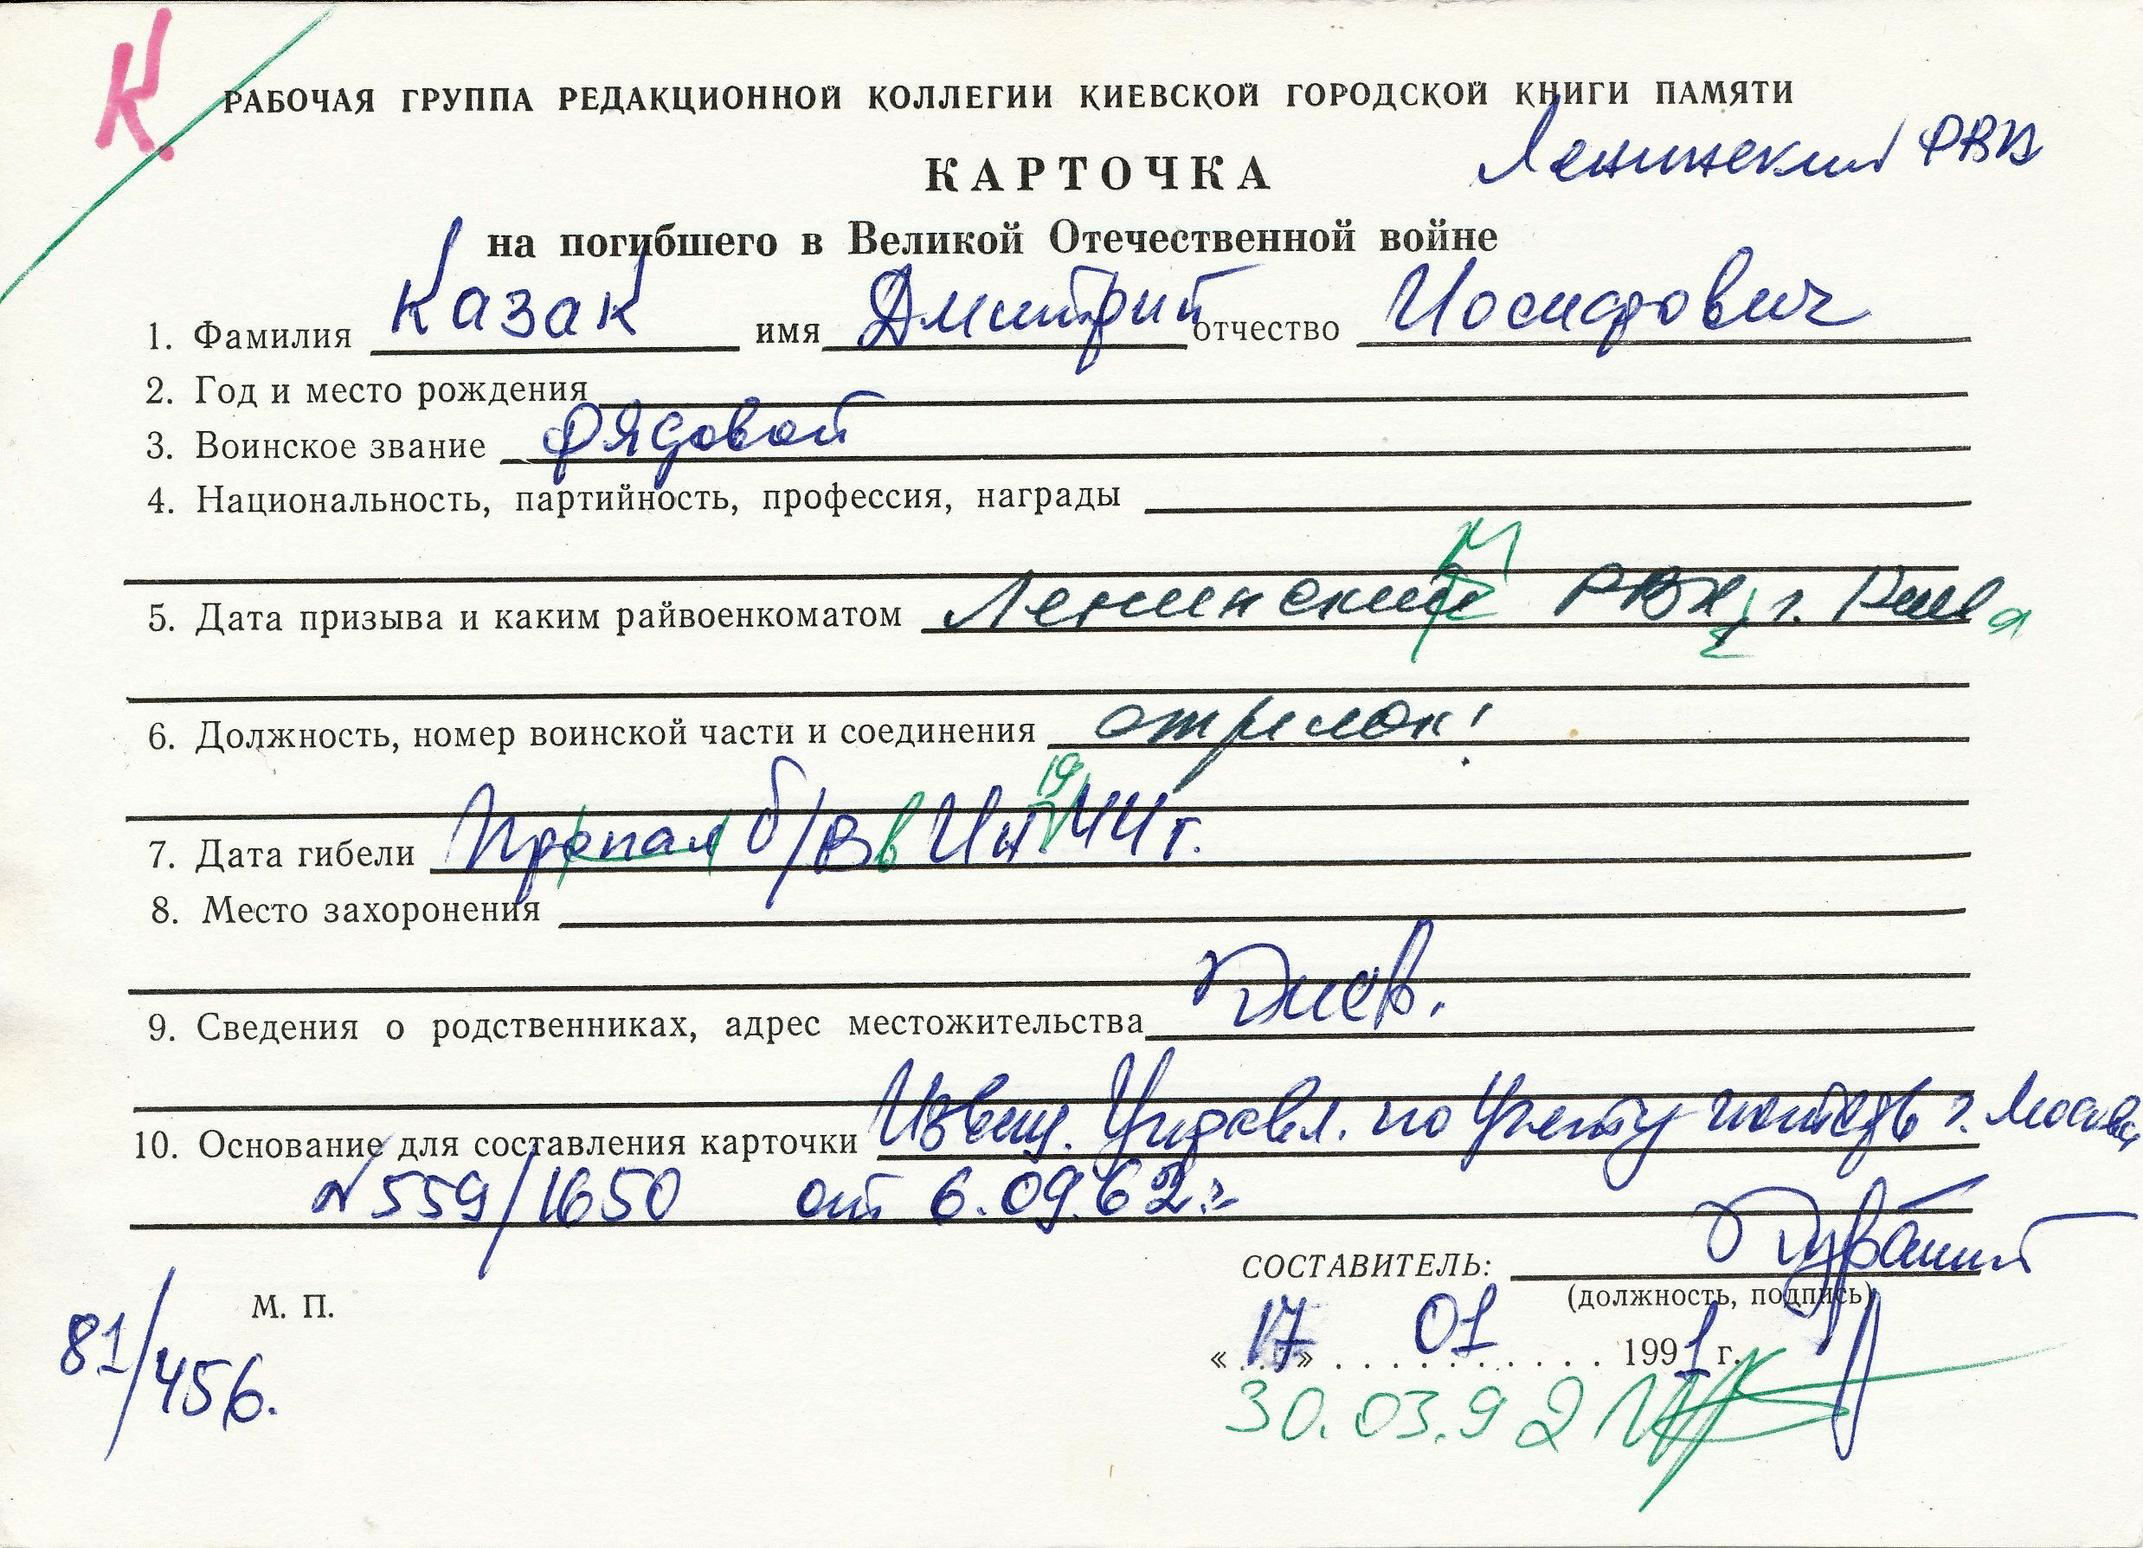 К.
РАБОЧАЯ ГРУППА РЕДАКЦИОННОЙ КОЛЛЕГИИ КИЕВСКОЙ ГОРОДСКОЙ КНИГИ ПАМЯТИ
Ленинский РВК
КАРТОЧКА
на погибшего в Великой Отечественной войне
1. Фамилия Казак имя Дмитрий отчество Иосифович
2. Год и место рождения
3. Воинское звание рядовой
4. Национальность, партийность, профессия, награды
5. Дата призыва и каким райвоенкоматом Ленинским РВК, г. Киева
6. Должность, номер воинской части и соединения стрелок
7. Дата гибели Пропал б/в в 1944 г.
8. Место захоронения
9. Сведения о родственниках, адрес местожительства Киев.
10. Основание для составления карточки Извещ. Управл. по учету потерь г. Москва
№ 559/1650 от 6.09.62 г.
СОСТАВИТЕЛЬ:
(должность, подпись)
М. П.
«17» 01 1991 г.
81/456.
30.03.92